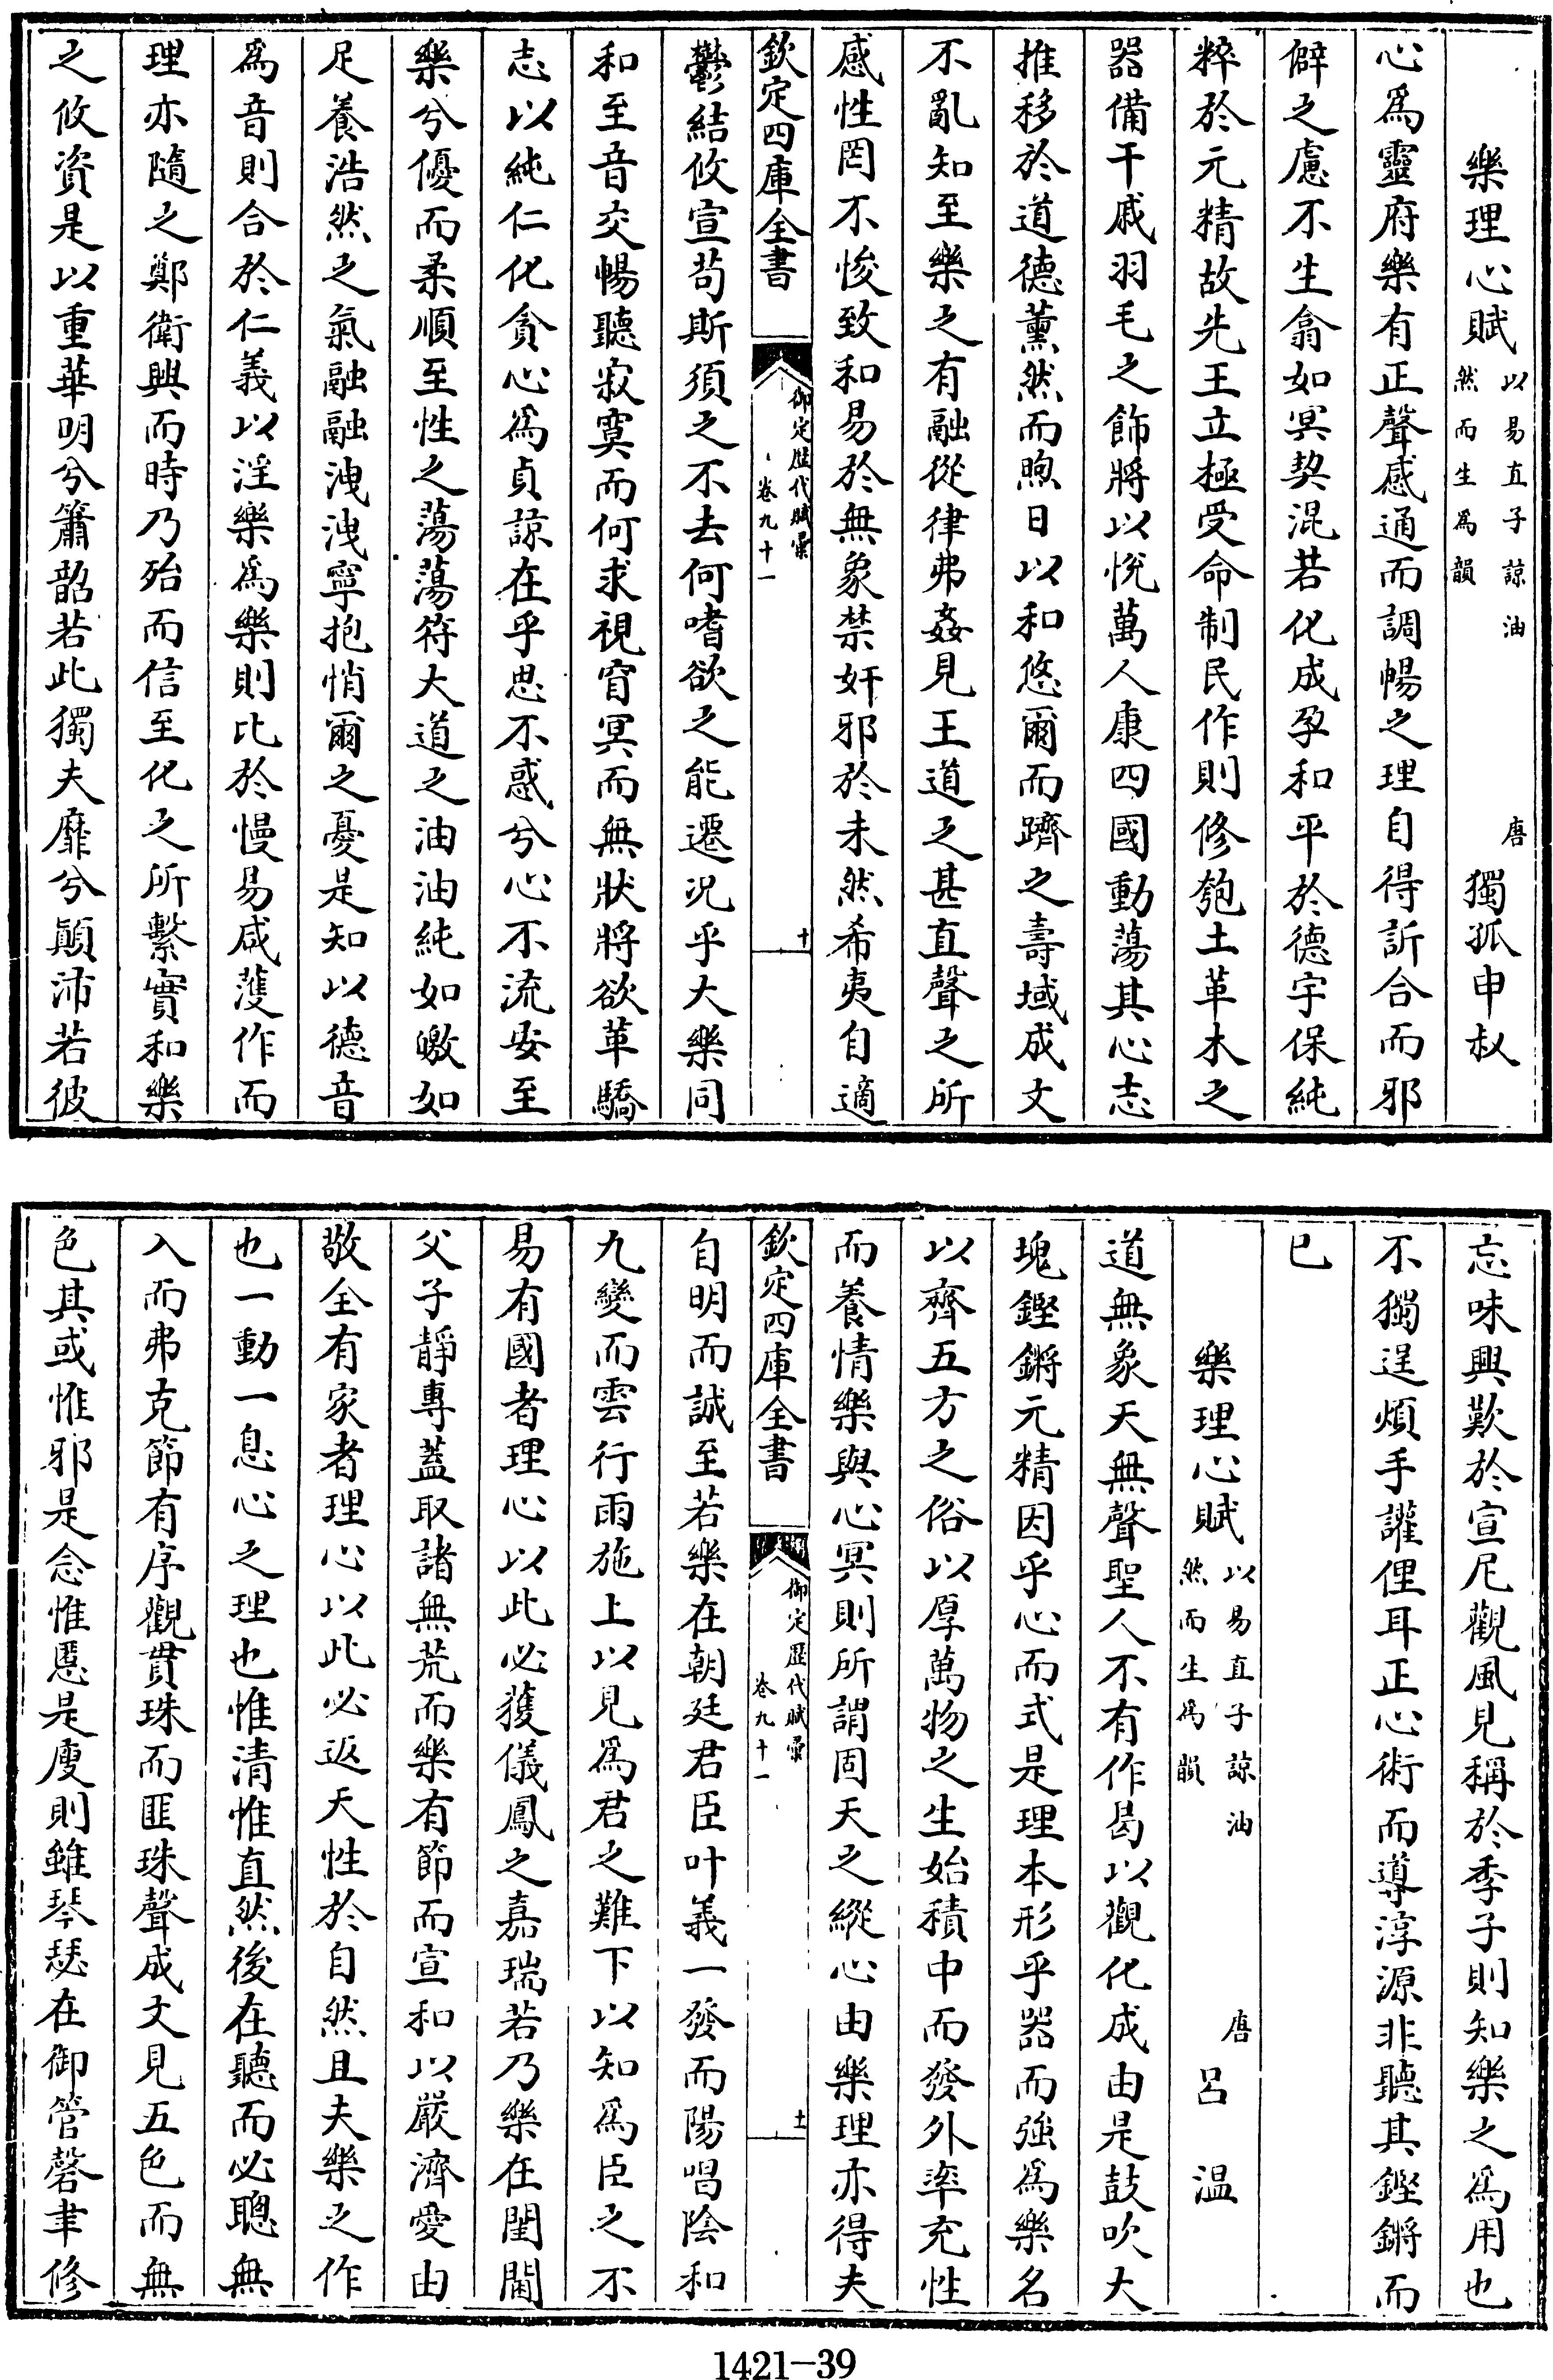 樂理心賦以易直子諒油然而生為韻 唐 獨孤申叔
心為靈府樂有正聲感通而調暢之理自得訢合而邪
僻之慮不生翕如冥契混若化成孕和平於德宇保純
粹於元精故先王立極受命制民作則修匏土革木之
器備干戚羽毛之飾將以悅萬人康四國動蕩其心志
推移於道德薰然而煦日以和悠爾而躋之壽域成文
不亂知至樂之有融從律弗姦見王道之甚直聲之所
感性罔不悛致和易於無象禁奸邪於未然希夷自適
欽定四庫全書 御定歷代賦彙 卷九十一 十
鬱結攸宣苟斯須之不去何嗜欲之能遷況乎大樂同
和至音交暢聽寂寞而何求視窅冥而無狀將欲革驕
志以純仁化貪心為貞諒在乎思不惑兮心不流安至
樂兮優而柔順至性之蕩蕩符大道之油油純如皦如
足養浩然之氣融融洩洩寧抱悄爾之憂是知以德音
為音則合於仁義以淫樂為樂則比於慢易咸濩作而
理亦隨之鄭衛興而時乃殆而信至化之所繫實和樂
之攸資是以重華明兮簫韶若此獨夫靡兮顛沛若彼
忘味興歎於宣尼觀風見稱於季子則知樂之為用也
不獨逞煩手讙俚耳正心術而導淳源非聽其鏗鏘而
已
樂理心賦以易直子諒油然而生為韻 唐 呂溫
道無象天無聲聖人不有作曷以觀化成由是鼓吹大
塊鏗鏘元精因乎心而式是理本形乎器而強為樂名
以齊五方之俗以厚萬物之生始積中而發外率充性
而養情樂與心冥則所謂固天之縱心由樂理亦得夫
欽定四庫全書 御定歷代賦彙 卷九十一 十一
自明而誠至若樂在朝廷君臣叶義一發而陽唱陰和
九變而雲行雨施上以見為君之難下以知為臣之不
易有國者理心以此必獲儀鳳之嘉瑞若乃樂在閨閫
父子靜專蓋取諸無荒而樂有節而宣和以嚴濟愛由
敬全有家者理心以此必返天性於自然且夫樂之作
也一動一息心之理也惟清惟直然後在聽而必聰無
入而弗克節有序觀貫珠而匪珠聲成文見五色而無
色其或惟邪是念惟慝是廋則雖琴瑟在御管磬聿修
1421-39